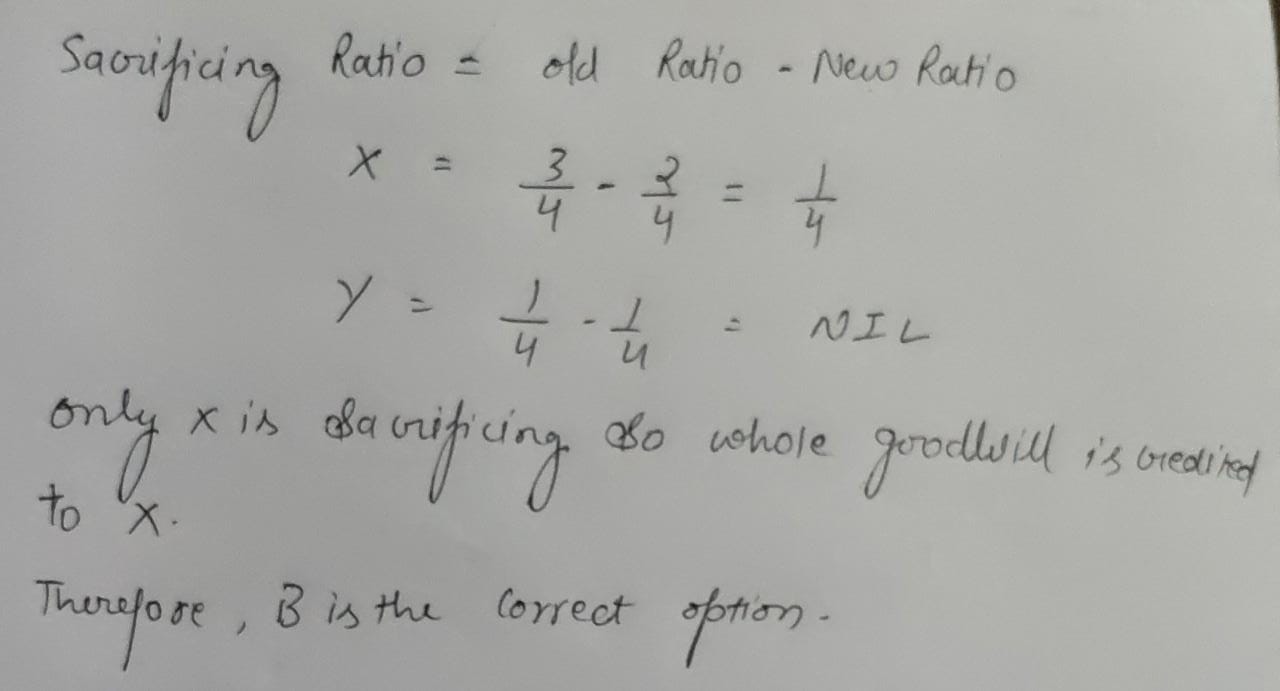 Sacrificing Ratio = old Ratio - New Ratio
X = 3/4 - 2/4 = 1/4
Y = 1/4 - 1/4 = NIL
only x is sacrificing so whole goodwill is credited
to x.
Therefore, B is the correct option.